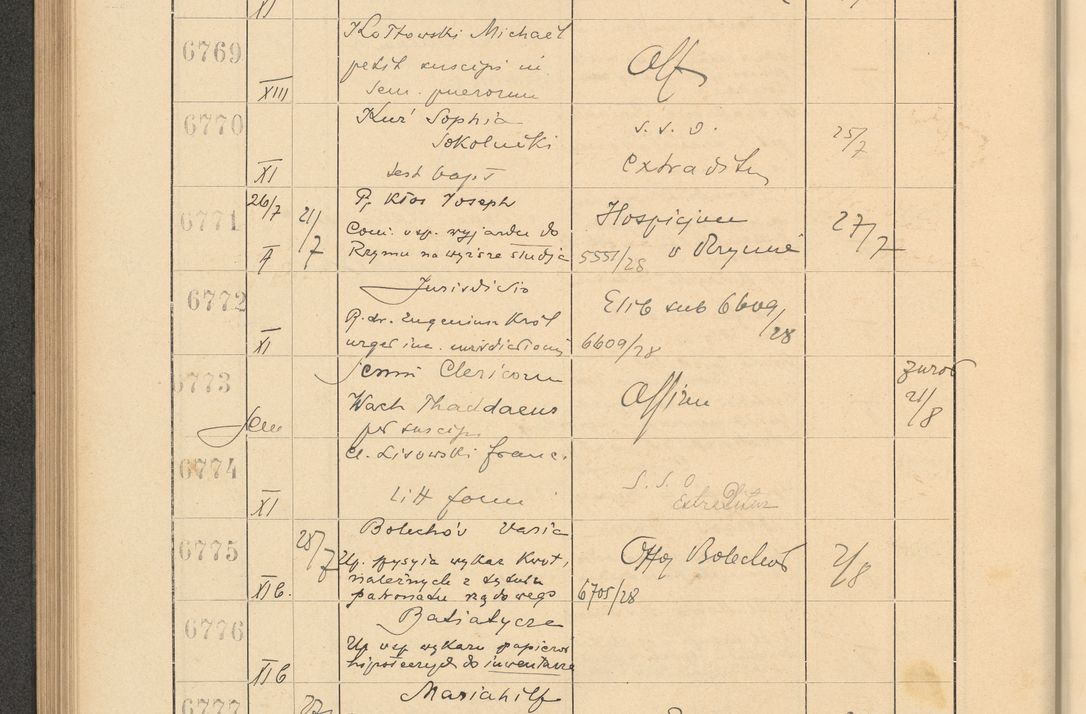 XI
6769
XIII
Kotkowski Michael
petit suscipi in
Sem. puerorum
Off
6770
XI
Kuś Sophia
Sokolniki
test bapt
s. s. o.
extraditur
25/7
6771
26/7
21/7
Kłos Joseph
wyjazdu do
Rzymu na wyższe studja
Hospicjum
5551/28 w Rzymie
27/7
6772
XI
Jurisdictio
P. dr. Eugeniusz Król
urget
Elib sub 6609/28
6609/28
6773
Sem
Clericorum
Wach Thaddaeus
pet suscipi
zwrot
21/8
6774
XI
cl. Lisowski Franc.
litt form
s. s. o
extraditur
6775
XI b.
28/7
Bolechów varia
wykaz kwot,
należnych z tytułu
patronatu rządowego
Off Bolechów
6705/28
2/8
6776
XI b
Batiatycze
Up wsp wykazu papierów
hipotecznych do inwentarza
6777
27
Mariahilf